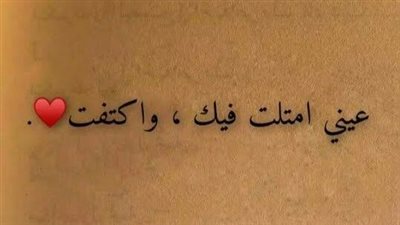 عيني امتلت فيك ، واكتفت♥️.